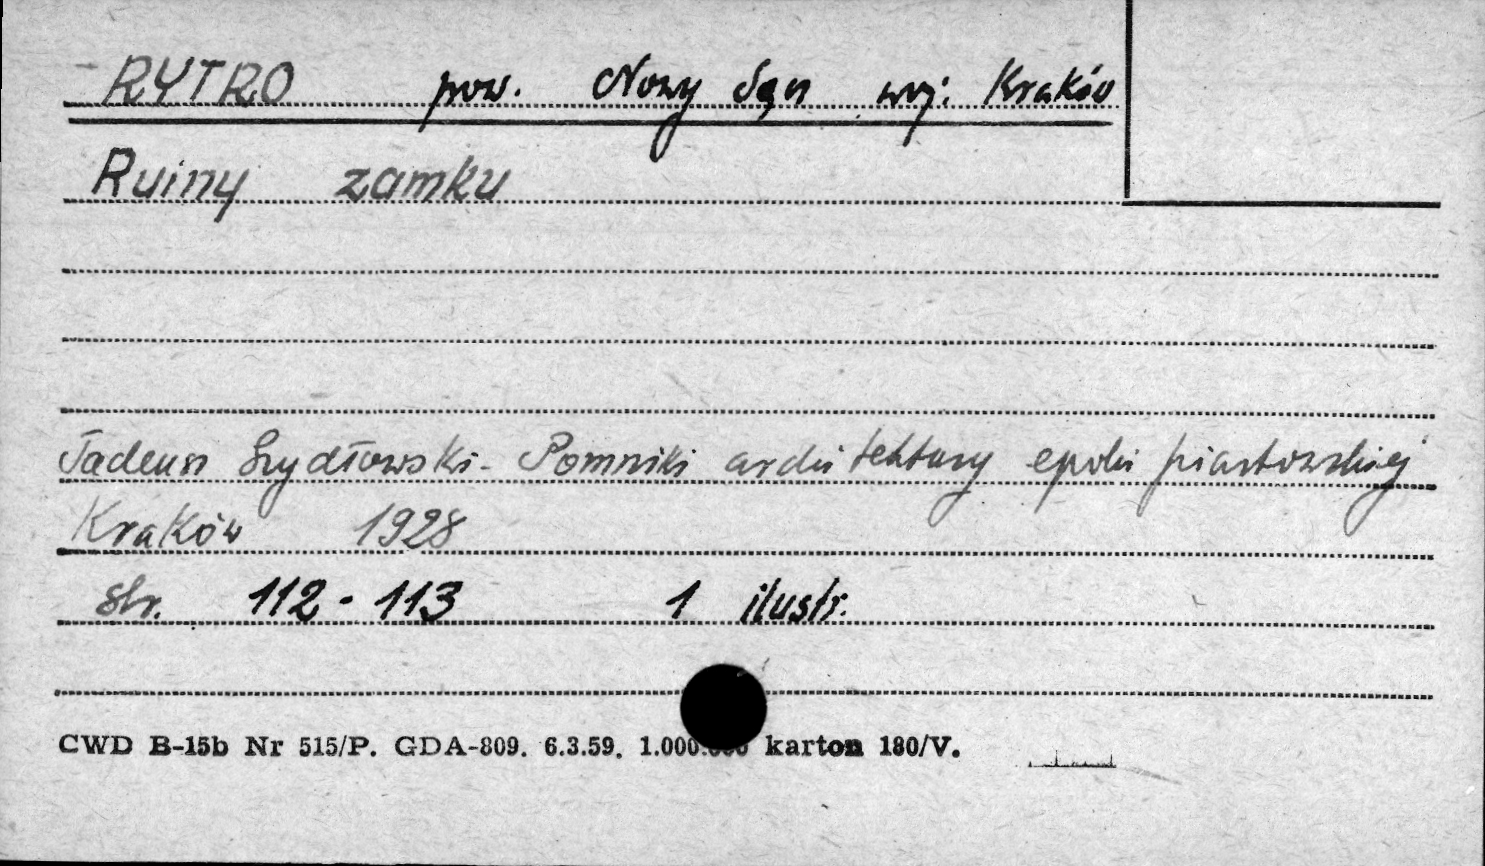 RYTRO pow. Nowy Sącz woj. Kraków
Ruiny zamku
Tadeusz Szydłowski - Pomniki architektury epoki piastowskiej
Kraków 1928
str. 112 - 113 1 ilustr.
CWD B-15b Nr 515/P. GDA-809. 6.3.59. 1.000.000 karton 180/V.